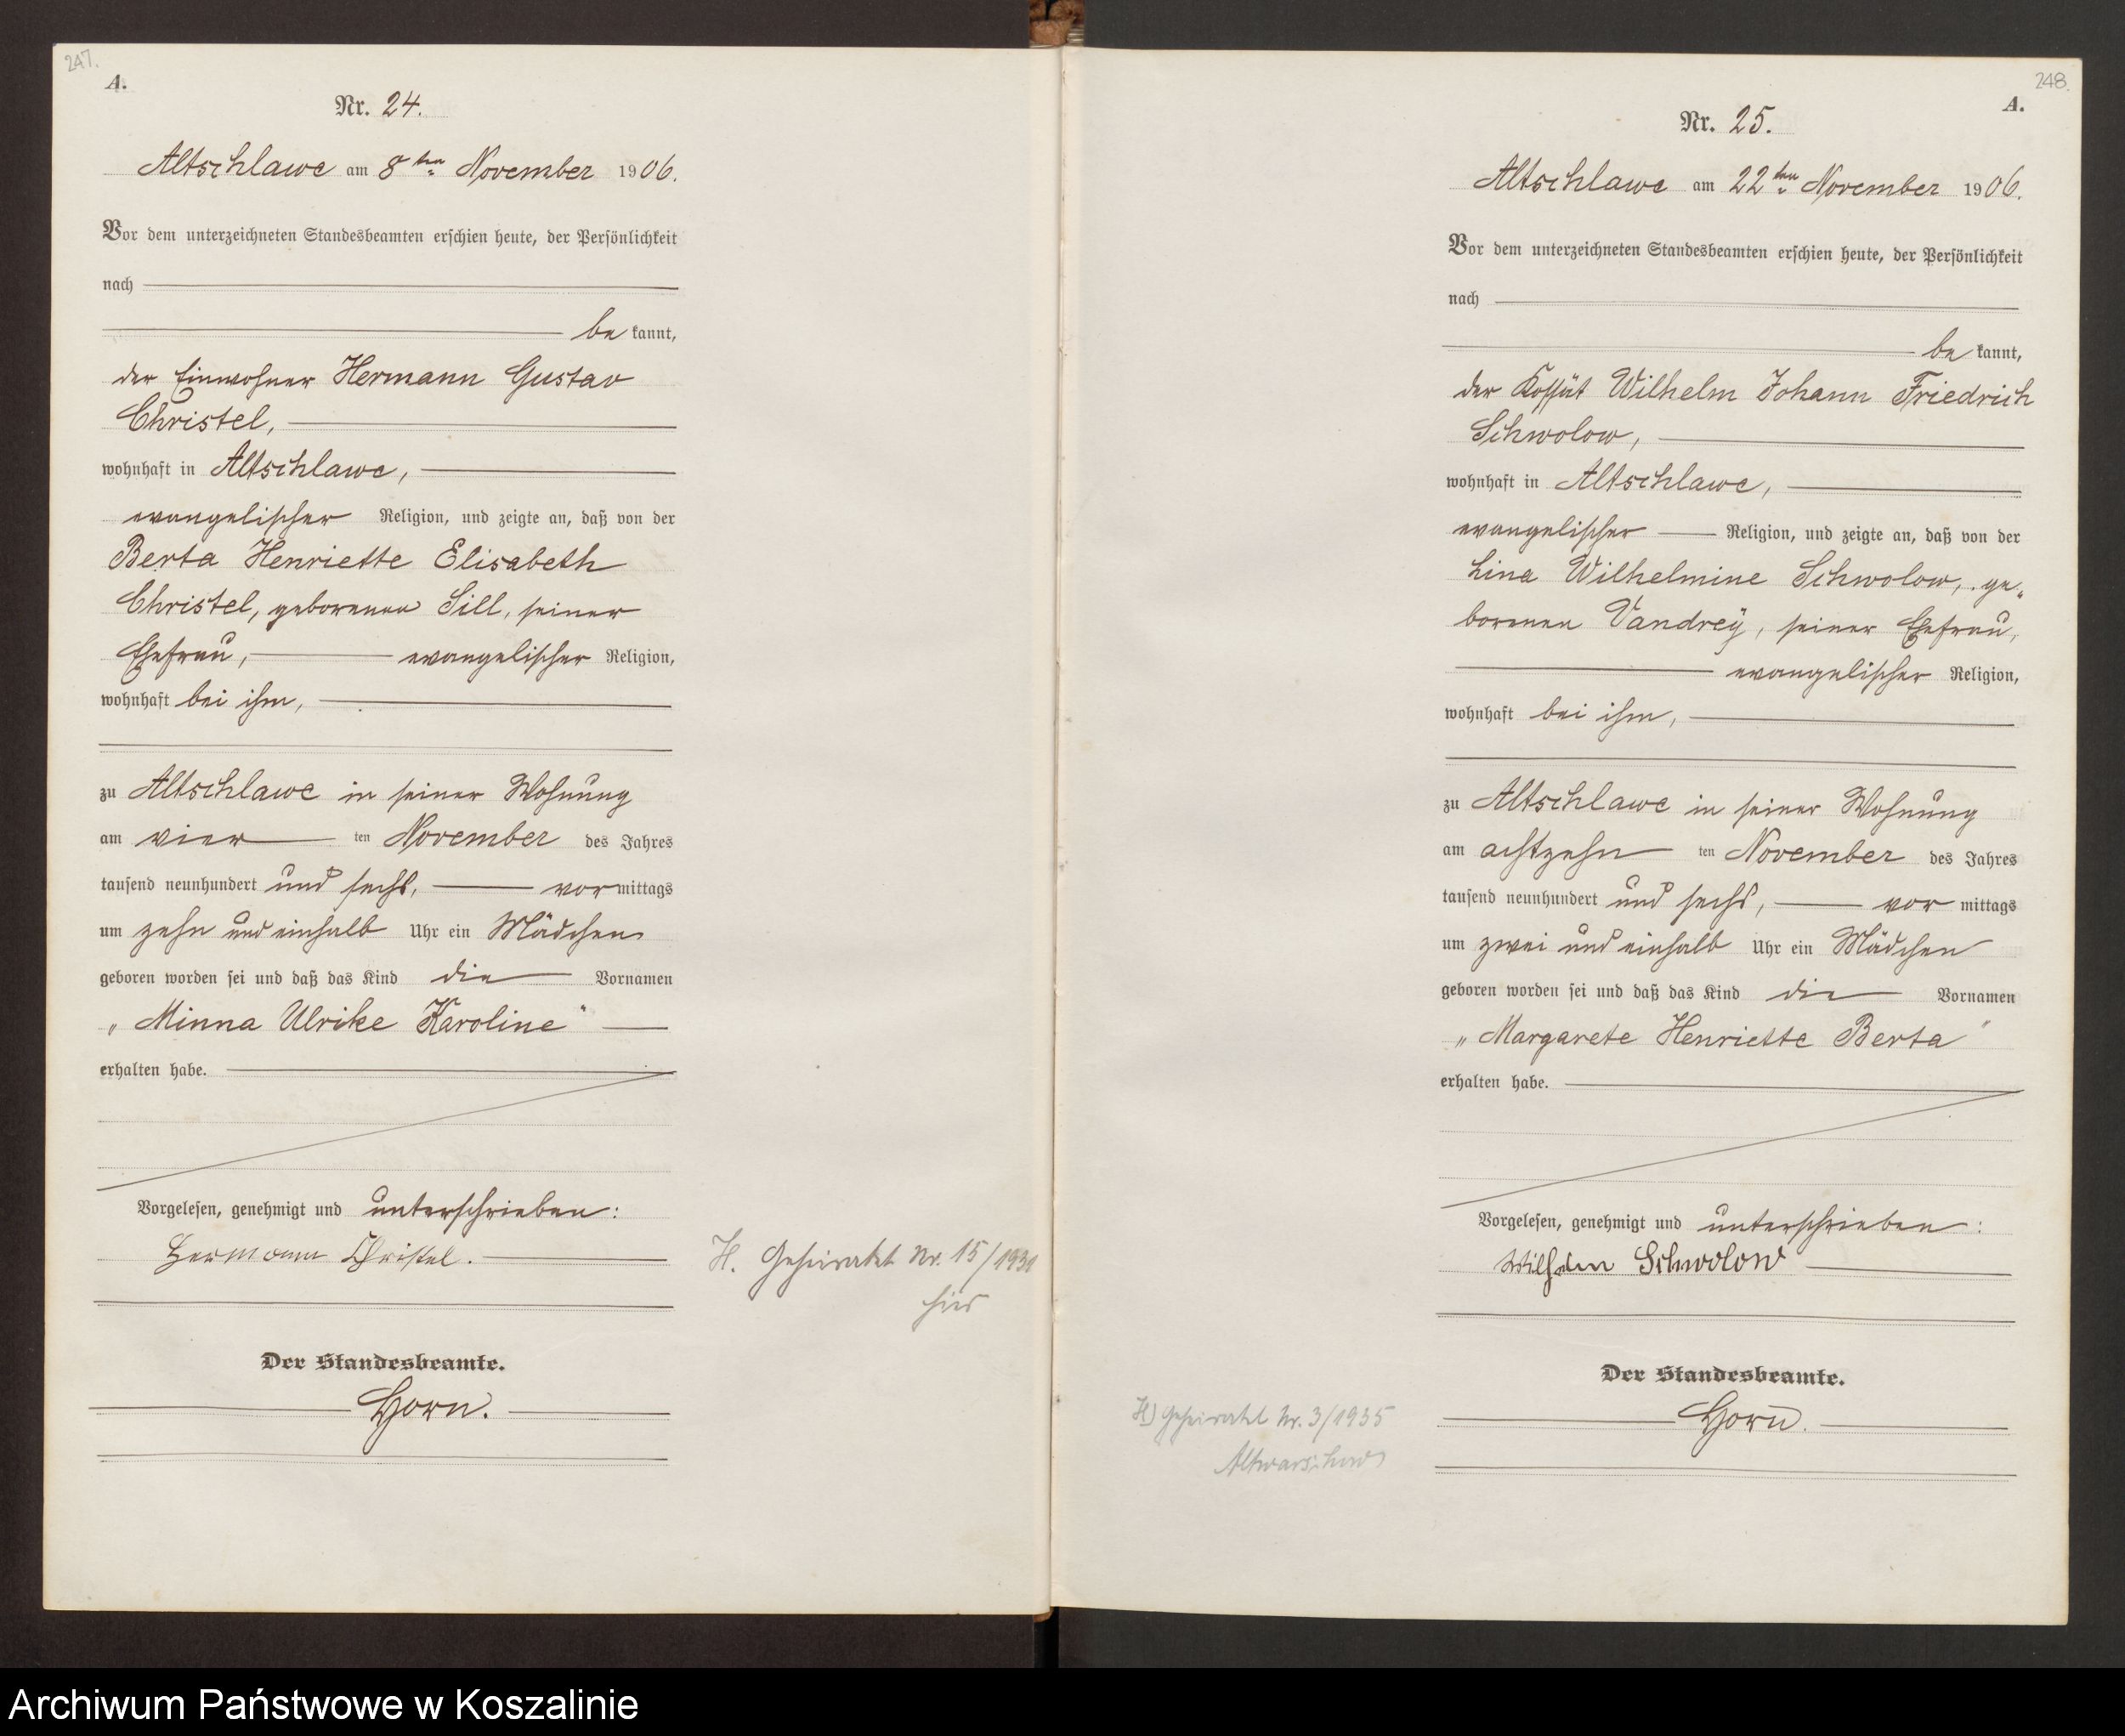 247.
A.
Nr. 24.
Altschlawe am 8ten November 1906.
Vor dem unterzeichneten Standesbeamten erschien heute, der Persönlichkeit
nach
be kannt,
der Einwohner Hermann Gustav
Christel,
wohnhaft in Altschlawe,
evangelischer Religion, und zeigte an, daß von der
Berta Henriette Elisabeth
Christel, geborenen Sill, seiner
Ehefrau, evangelischer Religion,
wohnhaft bei ihm,
zu Altschlawe in seiner Wohnung
am vier ten November des Jahres
tausend neunhundert und sechs, vormittags
um zehn und einhalb Uhr ein Mädchen
geboren worden sei und daß das Kind die Vornamen
„Minna Ulrike Karoline"
erhalten habe.
Vorgelesen, genehmigt und unterschrieben:
Hermann Christel.
H. Geheiratet Nr. 15/1931
hier
Der Standesbeamte.
Horn.
248.
A.
Nr. 25.
Altschlawe am 22ten November 1906.
Vor dem unterzeichneten Standesbeamten erschien heute, der Persönlichkeit
nach
be kannt,
der Kossät Wilhelm Johann Friedrich
Schwolow,
wohnhaft in Altschlawe,
evangelischer Religion, und zeigte an, daß von der
Lina Wilhelmine Schwolow, ge„
borenen Vandreÿ, seiner Ehefrau,
evangelischer Religion,
wohnhaft bei ihm,
zu Altschlawe in seiner Wohnung
am achtzehn ten November des Jahres
tausend neunhundert und sechs, vor mittags
um zwei und einhalb Uhr ein Mädchen
geboren worden sei und daß das Kind die Vornamen
„Margarete Henriette Berta"
erhalten habe.
Vorgelesen, genehmigt und unterschrieben:
Wilhelm Schwolow
Der Standesbeamte.
Horn.
H) Geheiratet Nr. 3/1935
Altwarschow
Archiwum Państwowe w Koszalinie